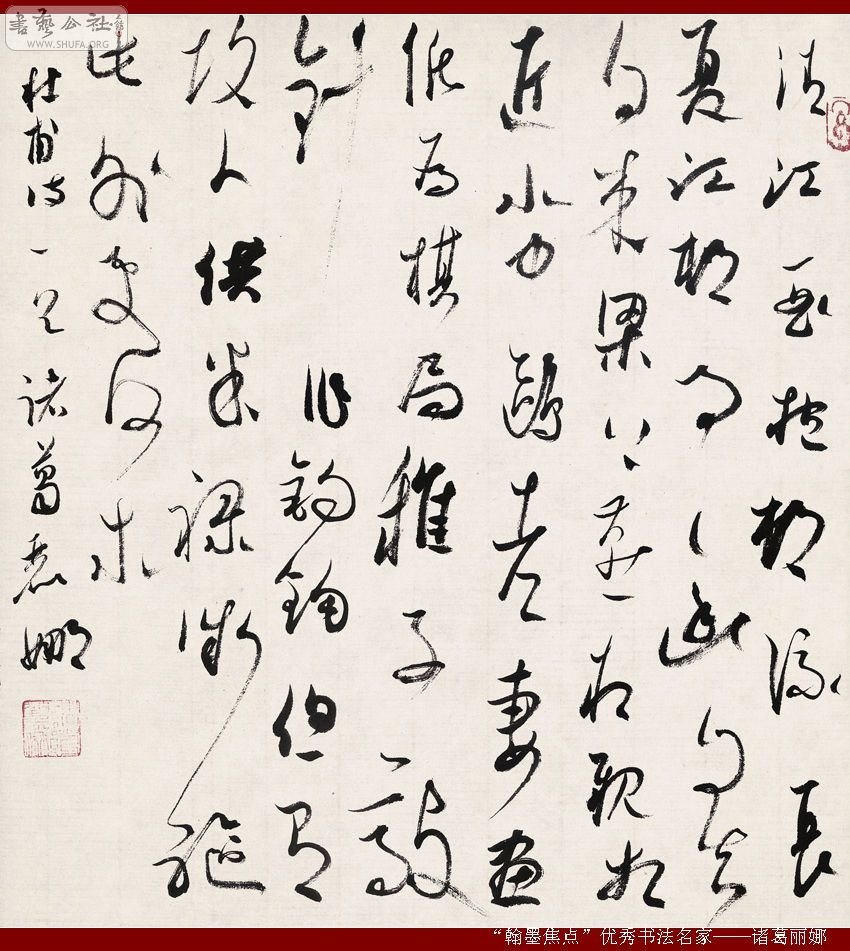 書藝公社
WWW.SHUFA.ORG
清江一曲抱村流長
夏江村事〻幽自去
自来梁上燕相親相
近水中鷗老妻画
纸為棋局稚子敲
針作钓鈎但有
故人供米禄微軀
此外更何求
杜甫诗一首 诸葛丽娜
“翰墨焦点”优秀书法名家——诸葛丽娜